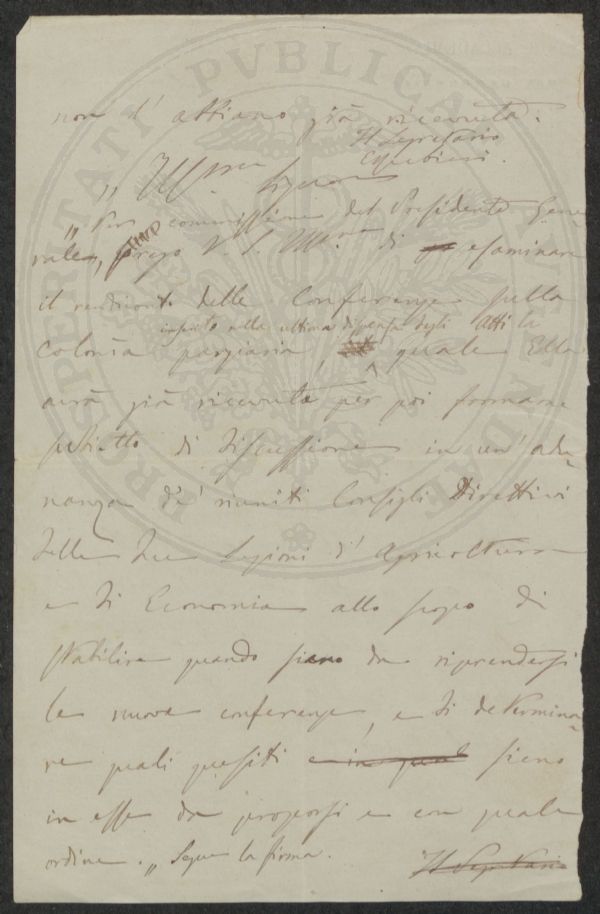 PROSPERITATI PVBLICAE AVGENDAE
non l'abbiano già ricevuta.
Il Segretario
„ Ill.mo Signore
„ Per commissione del Presidente Gene-
rale, prego V. S. Ill.ma di esaminare
il rendiconto delle Conferenze sulla
inserito nella ultima dispensa degli Atti la
Colonia parziaria, quale Ella
avrà già ricevuta per poi formare
subietto di discussione in un'adu-
nanza de' riuniti Consigli Direttivi
delle due Sezioni d'Agricoltura
e di Economia allo scopo di
stabilire quando siano da riprendersi
le nuove conferenze, e di determina-
re quali quesiti e in quale sieno
in esse da proporsi e con quale
ordine. „ Segue la firma.
Il Segretario